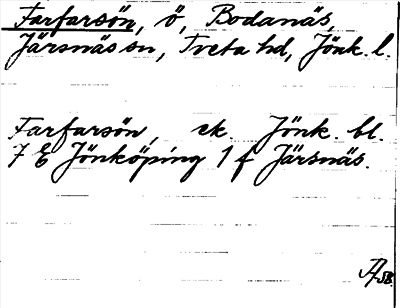 Farfarsön, ö, Bodanäs,
Järsnäs sn, Tveta hd, Jönk. l.
Farfarsön, ek. Jönk. bl.
7 E Jönköping 1 f Järsnäs.